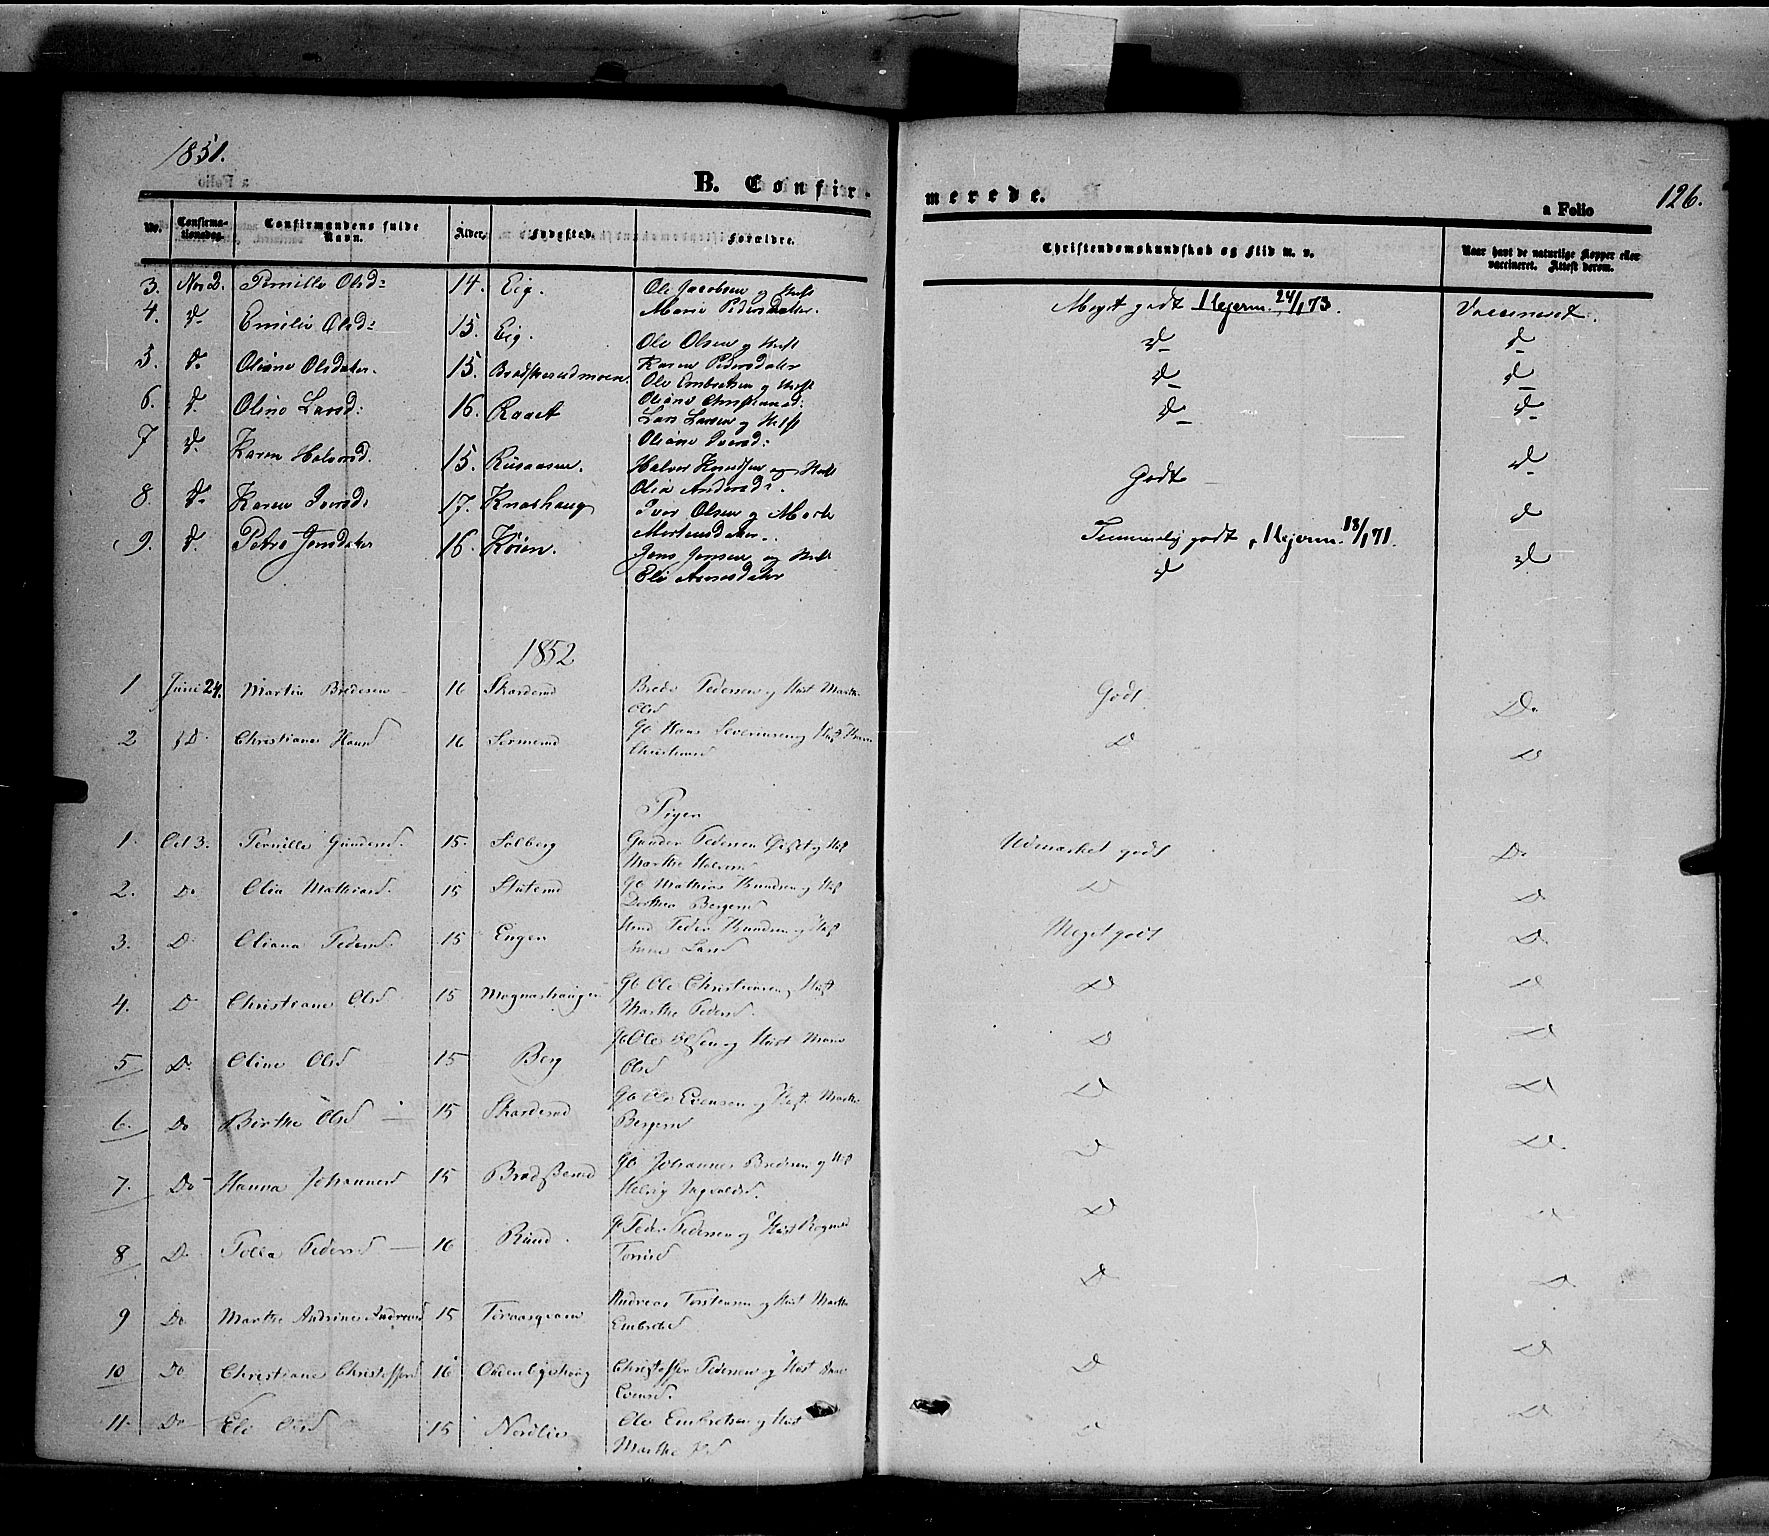 1851.
B. Confir-
merede.
a Folio
126.
No. Confirmationsdag. Confirmandens fulde Navn. Alder. Fødested. Forældre. Christendomskundskab og Flid m. v. Naar havt de naturlige Kopper eller vaccineret. Attest derom.
3. Nov 2. Pernille Olsd: 14. Eig. Ole Jacobsen og Hust Marie Pedersdatter. Meget godt Vaccineret.
4. D. Emilie Olsd: 15. Eig. Ole Olsen og Hust Karen Pedersdatter D D
5. D. Oliane Olsdater. 15. Ole Embretsen og Hust Oliane D D
6. D. Oline Larsd: 16. Raaet Lars Larsen og Hust Oliane Iversd: D D
7 D. Karen Halvorsd. 15. Halvor Knudsen og Hust Olia Andersd. Godt D
8. D. Karen Iversd: 17. Knashaug Iver Olsen og Marte Mortensdater. Temmelig godt D
9. D. Petre Jensdater 16. Køien. Jens Jensen og Hust Eli Arnesdater D D
1852
1 Juni 24. Martin Bredesen 16 Skarderud Brede Pedersen og Hust Marthe Olsd Godt. Do
2 D. Christiane Hansd 16 Gb Hans Severinsen og Hust Karen Christiansd D D
Piger
1. Oct 3. Pernille Gundersd. 15. Solberg Gunder Pedersen og Hust Marthe Halvorsd Udmærket godt Do
2. Do Olia Mathiasd. 15 Gb Mathias Knudsen og Hust Dorthea Bergersd D D
3. D. Oliana Pedersd. 15 Engen Peder Knudsen og Hust Larsd Meget godt D
4. D Christiane Olsd 15 Magnashaugen Gb Ole Christiansen og Hust Marthe Pedersd. D D
5 D. Oline Olsd 15 Berg Gb Ole Olsen og Hust Marie Olsd D D
6. Do Birthe Olsd 15 Skarderud Gb Ole Evensen og Hust. Marthe Bergersd D D
7. Do Hanna Johannesd 15 Gb Johannes Bredesen og Hust Helvig Ingvaldsd. D D
8 D. Polla Pedersd 16 Rund. G. Peder Pedersen og Hust Ragnild D D
9 Do Marthe Andrine Andreasd 15 Andreas Torstensen og Hust Marthe Embretsd D D
10 Do Christiane Christoffersd 16 Christoffer Pedersen og Hust Evensd. D D
11. Do Eli Olsd 15 Nordlie Ole Embretsen og Hust Marthe D D